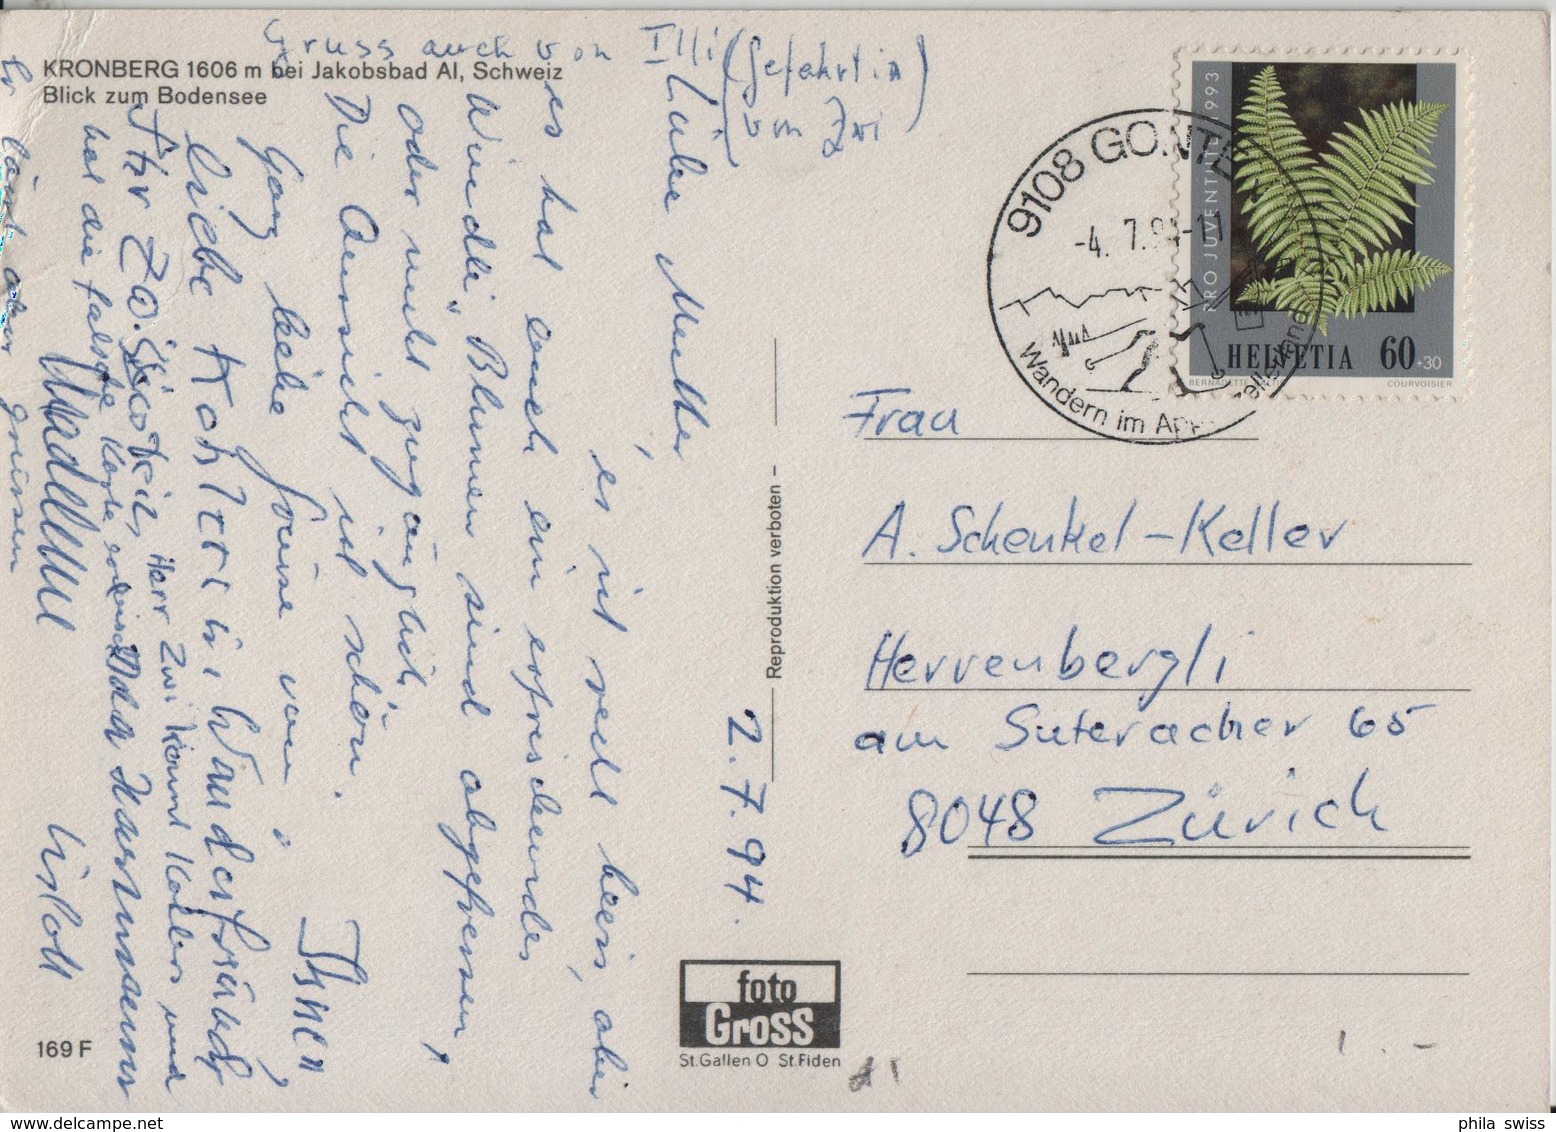 KRONBERG 1606 m bei Jakobsbad AI, Schweiz
Blick zum Bodensee
Gruss auch von Illi (Gefährtin
von Zwi)
2.7.94.
Liebe Mutter,
es ist recht heiss, aber
es hat auch ein erfrischendes
Windli, Blumen sind abgefressen,
oder nicht zugänglich.
Die Aussicht ist schön.
Ganz liebe Grüsse von Ihnen,
liebe Wanderfreunde
Herr Zwi kommt und
hat die falsche Karte erwischt
er lässt aber grüssen
Reproduktion verboten
foto
Gross
St.Gallen O St.Fiden
169 F
9108 GONTEN
-4. 7.94-11
Wandern im Appenzellerland
PRO JUVENTUTE 1993
HELVETIA 60 +30
COURVOISIER
Frau
A. Schenkel-Keller
Herrenbergli
am Suteracher 65
8048 Zürich
1.-
phila swiss